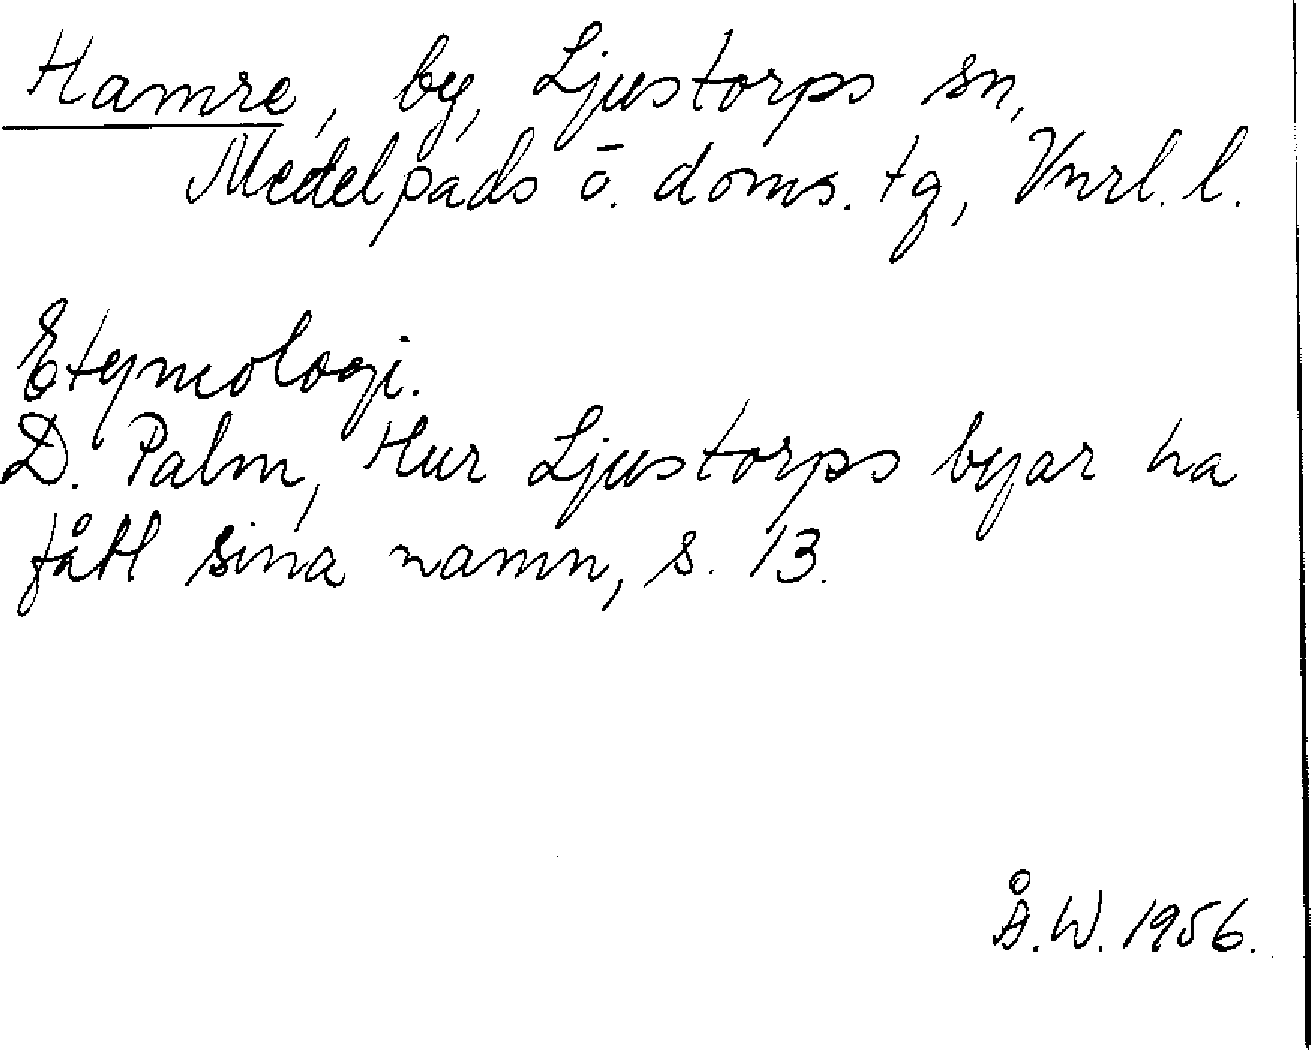 Hamre, by, Ljustorps sn,
Medelpads ö. doms. tg, Vnrl. l.
Etymologi.
D. Palm, Hur Ljustorps byar ha
fått sina namn, s. 13.
Å.W. 1956.